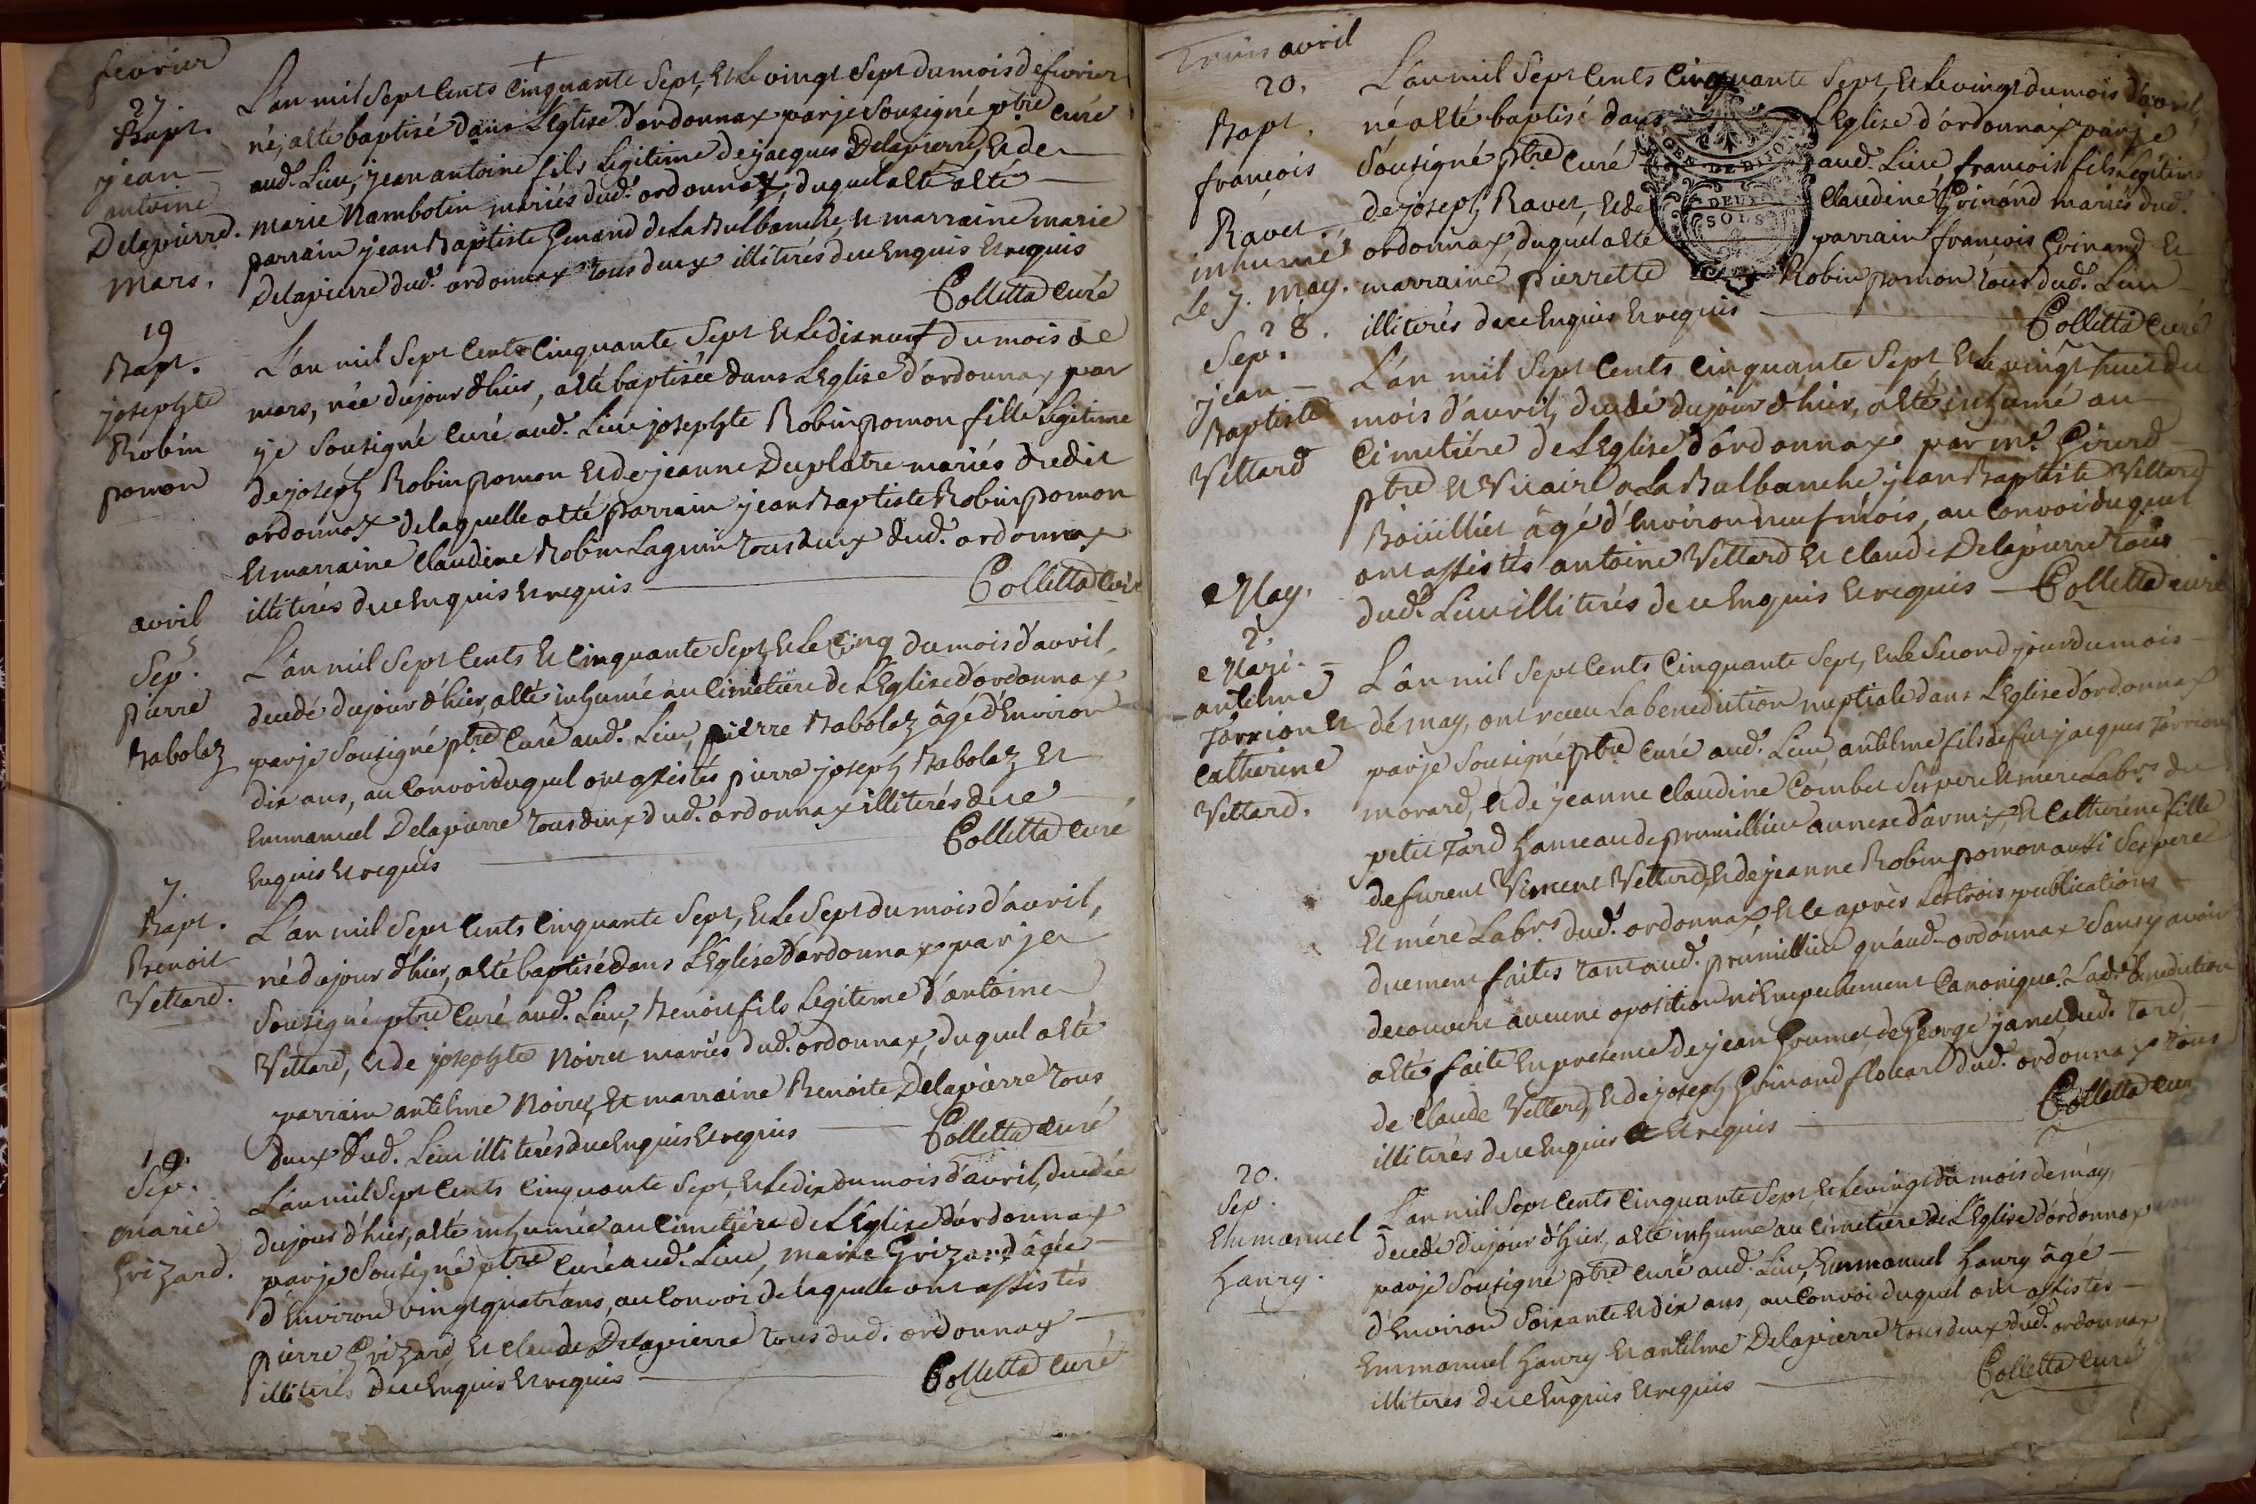 février
27.
Bapt.
jean
antoine
Delapierre.
L'an mil sept cents cinquante sept, et le vingt sept du mois de fevrier
né, a eté baptisé dans l'Eglise d'ordonnax par je sousigné ptre curé
aud. Lieu, jean antoine fils legitime de jacques Delapierre, et de
marie Nambotin mariés dud. ordonnax, duquel a eté
parrain jean Baptiste de la Bulbanche, et marraine marie
Delapierre dud. ordonnax tous deux illiterés de ce enquis et requis
Colletta curé
mars.
19
Bapt.
josephte
Robin
pomon
L'an mil sept cents cinquante sept et le dix neuf du mois de
mars, née du jour d'hier, a eté baptisée dans l'Eglise d'ordonnax par
je sousigné curé aud. Lieu josephte Robin pomon fille legitime
de joseph Robin pomon et de jeanne Duplatre mariés dudit
ordonnax de laquelle a eté parrain jean Baptiste Robin pomon
et marraine Claudine Robin Laguin tous deux dud. ordonnax
illiterés de ce enquis et requis
Colletta curé
avril
5
Sep.
pierre
Babolaz
L'an mil sept cents et cinquante sept, et le cinq du mois d'avril,
decedé du jour d'hier, a eté inhumé au cimetiere de l'Eglise d'ordonnax
par je sousigné ptre curé aud. Lieu, pierre Babolaz âgé d'environ
dix ans, au convoi duquel ont assistés pierre joseph Babolaz et
Emmanuel Delapierre tous deux dud. ordonnax illiterés de ce
enquis et requis
Colletta curé
7.
Bapt.
Benoit
Vettard.
L'an mil sept cents cinquante sept, et le sept du mois d'avril,
né du jour d'hier, a eté baptisé dans l'Eglise d'ordonnax par je
sousigné ptre curé aud. Lieu, Benoit fils legitime d'antoine
Vettard, et de josephte Noiret mariés dud. ordonnax, duquel a eté
parrain antelme Noiret, et marraine Benoite Delapierre tous
deux dud. Lieu illiterés de ce enquis et requis
Colletta curé
10.
Sep.
marie
Grizard.
L'an mil sept cents cinquante sept, et le dix du mois d'avril, decedée
du jour d'hier, a eté inhumée au cimetiere de l'Eglise d'ordonnax
par je sousigné ptre curé aud. Lieu, marie Grizard âgée
d'environ vingt quatr'ans, au convoi de laquelle ont assistés
pierre Grizard, et claude Delapierre tous dud. ordonnax
illiterés de ce enquis et requis
Colletta curé
avril
20.
Bapt.
françois
Ravet.
inhumé
le 7. may.
L'an mil sept cents cinquante sept, et le vingt du mois d'avril,
né a eté baptisé dans l'Eglise d'ordonnax par je
sousigné ptre curé aud. Lieu françois fils legitime
de joseph Ravet, et de claudine Grinand mariés dud.
ordonnax, duquel a eté parrain françois Grinand et
marraine pierrette Robin pomon tous dud. Lieu
illiterés de ce enquis et requis
Colletta curé
GEN. DE DIJON
DEUX
SOLS
28.
Sep.
jean
Baptiste
Vettard
L'an mil sept cents cinquante sept, et le vingt huit du
mois d'avril, decedé du jour d'hier, a eté inhumé au
cimetiere de l'Eglise d'ordonnax par mr Girerd
ptre et vicaire a la Bulbanche jean Baptiste Vettard
Bouillier âgé d'environ neuf mois, au convoi duquel
ont assistés antoine Vettard et claude Delapierre tous
dud. Lieu illiterés de ce enquis et requis Colletta curé
May.
2.
Mari.
antelme
et
catherine
Vettard.
L'an mil sept cents cinquante sept, et le second jour du mois
de may, ont receu la benediction nuptiale dans l'Eglise d'ordonnax
par je sousigné ptre curé aud. Lieu antelme fils de feu jacques
morard, et de jeanne claudine Combet ses pere et mere Labrs du
petit Tard hameau de prumillieu annexe d'armix, et catherine fille
de furent Vincent Vettard, et de jeanne Robin pomon aussi ses pere
et mére Labrs dud. ordonnax, et ce après les trois publications
duement faites tant aud. prumillieu qu'aud. ordonnax sans y avoir
decouvert aucune oposition ni empechement canonique. Lad. benediction
a eté faite en presence de jean Goumet, de George janet, dud. Tard,
de claude Vettard, et de joseph Grinand dud. ordonnax tous
illiterés de ce enquis et requis
Colletta curé
20.
Sep.
Emmanuel
hanry.
L'an mil sept cents cinquante sept, et le vingt du mois de may,
decedé du jour d'hier, a eté inhumé au cimetiere de l'Eglise d'ordonnax
par je sousigné ptre curé aud. Lieu, Emmanuel hanry âgé
d'environ soixante et dix ans, au convoi duquel ont assistés
Emmanuel hanry et antelme Delapierre tous deux dud. ordonnax
illiterés de ce enquis et requis
Colletta curé